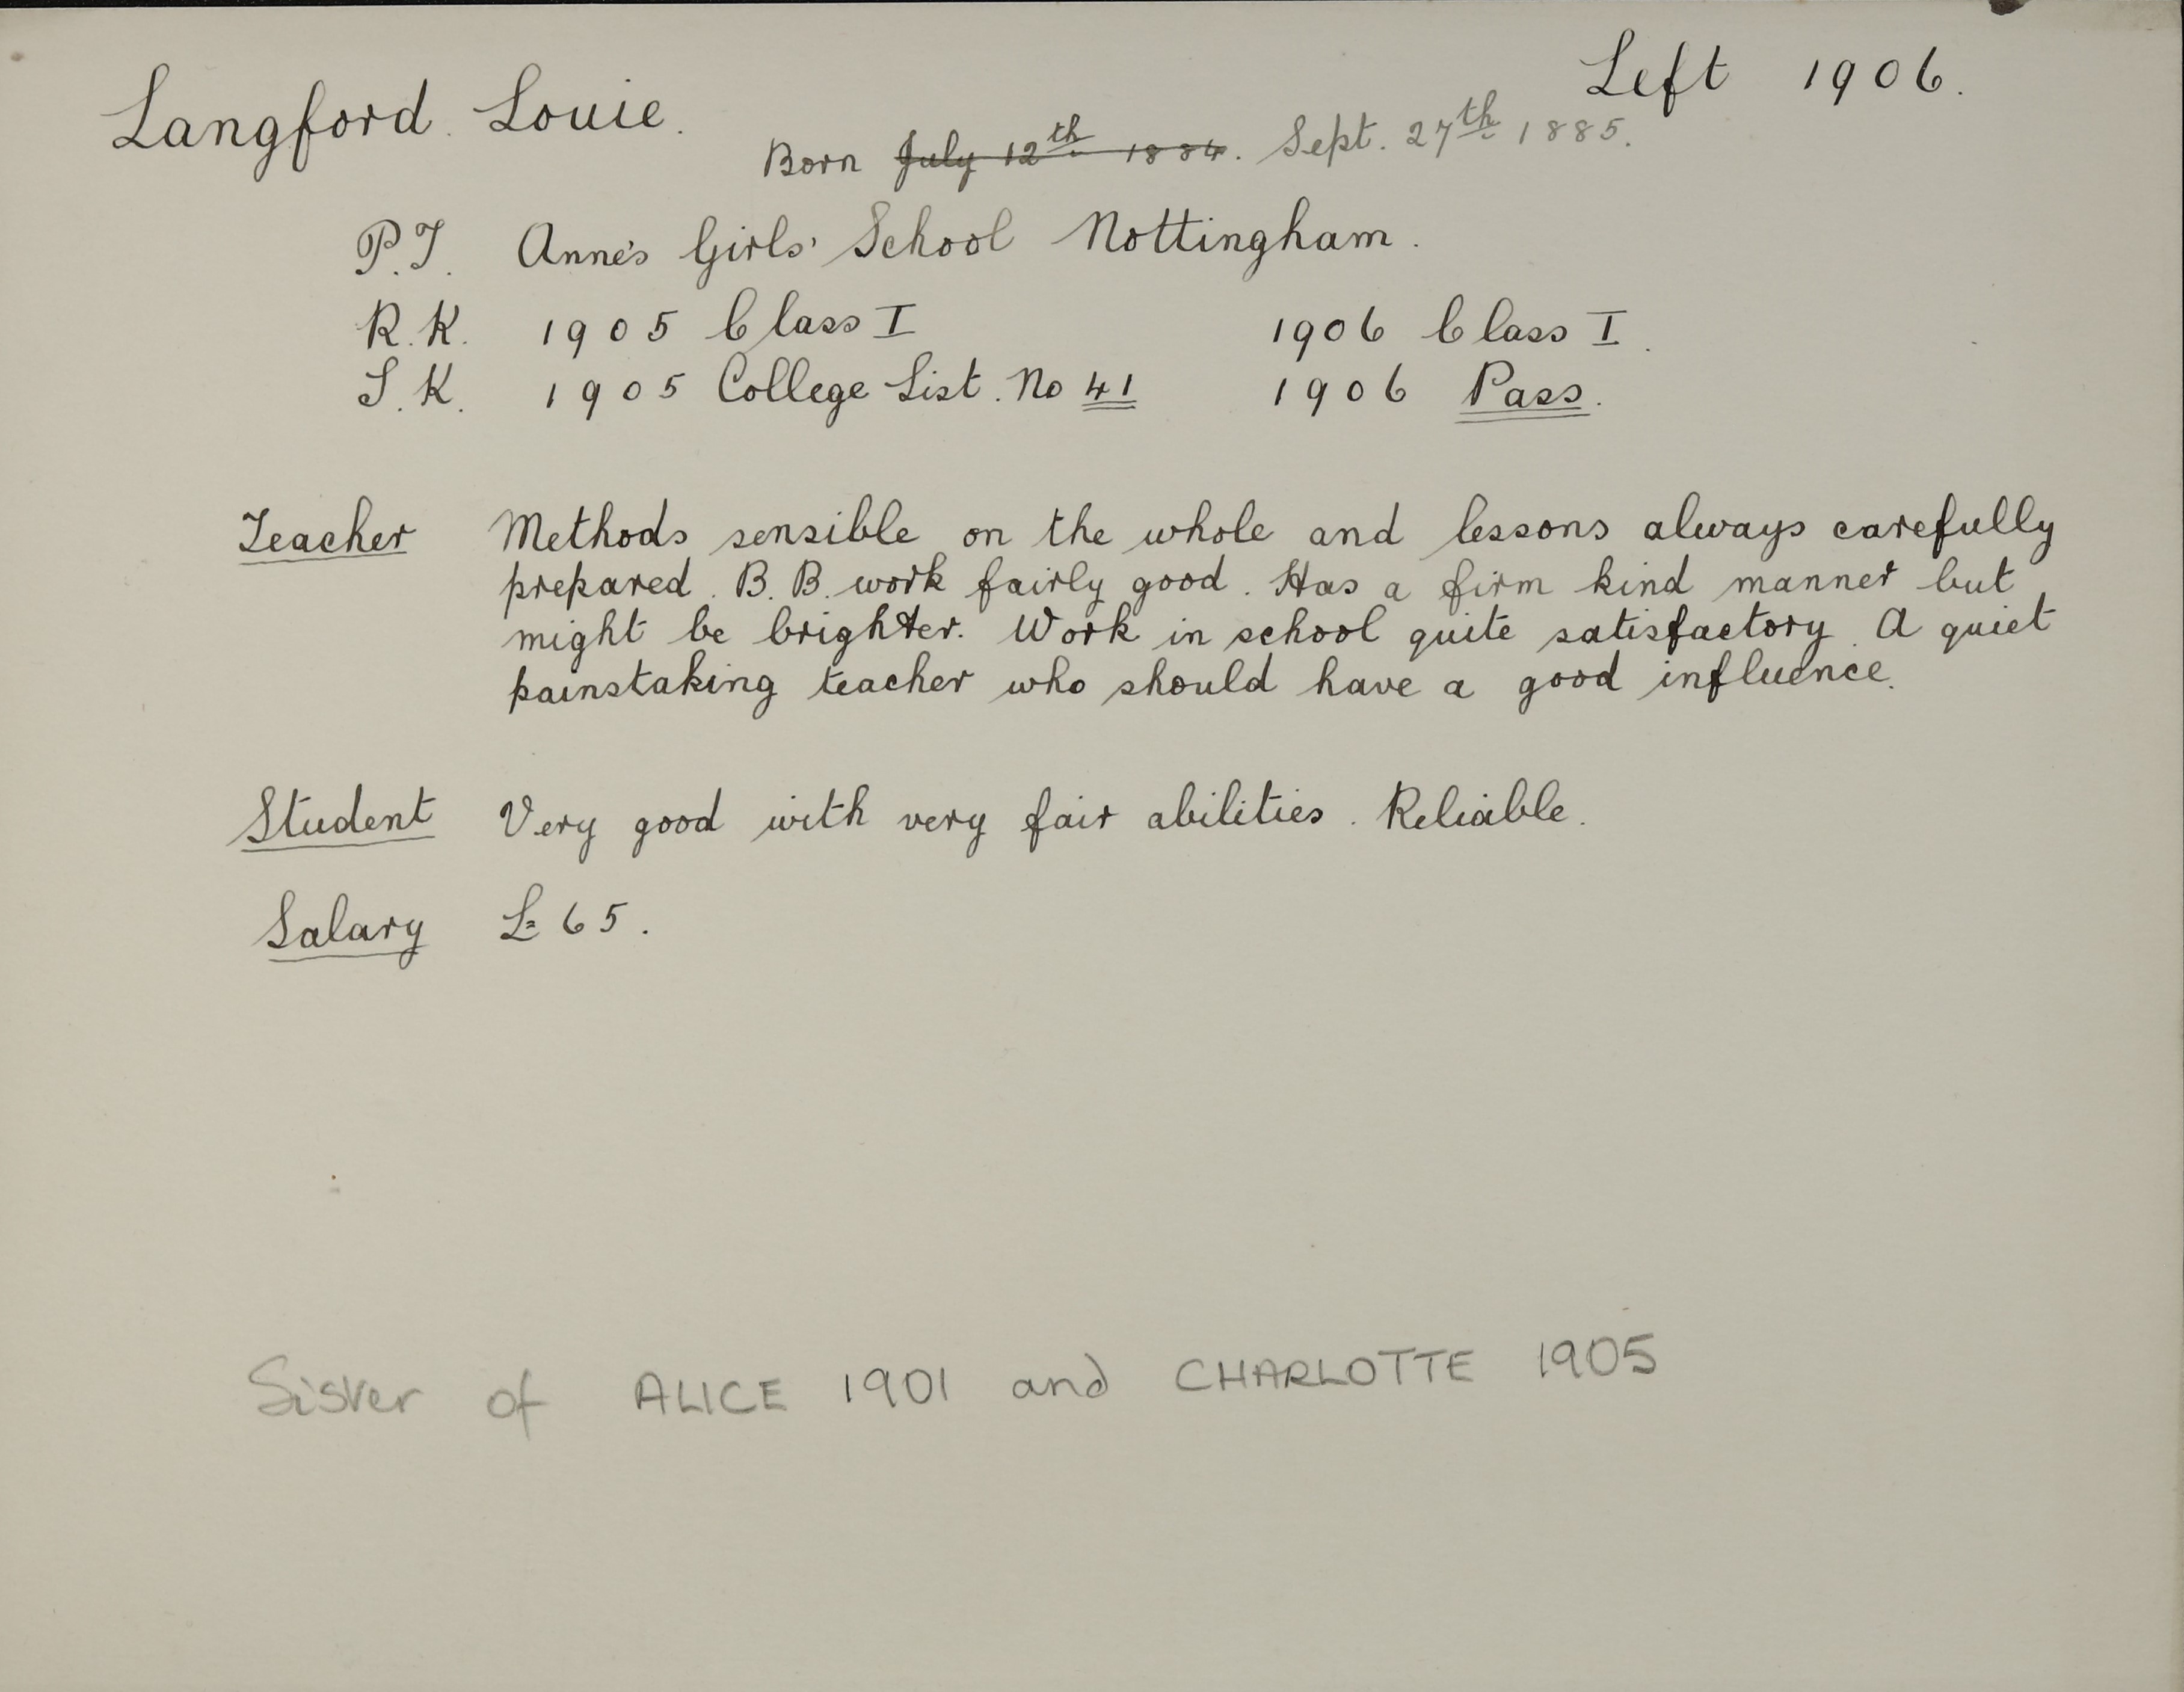 Left 1906.
Langford. Louie.
Born July 12th 1884. Sept. 27th 1885.
P.T. Anne's Girls' School Nottingham.
R.K. 1905 Class I 1906 Class I.
S.K. 1905 College List. No 41 1906 Pass.
Teacher Methods sensible on the whole and lessons always carefully
prepared. B.B. work fairly good. Has a firm kind manner but
might be brighter. Work in school quite satisfactory. A quiet
painstaking teacher who should have a good influence.
Student Very good with very fair abilities. Reliable.
Salary £65.
Sister of ALICE 1901 and CHARLOTTE 1905